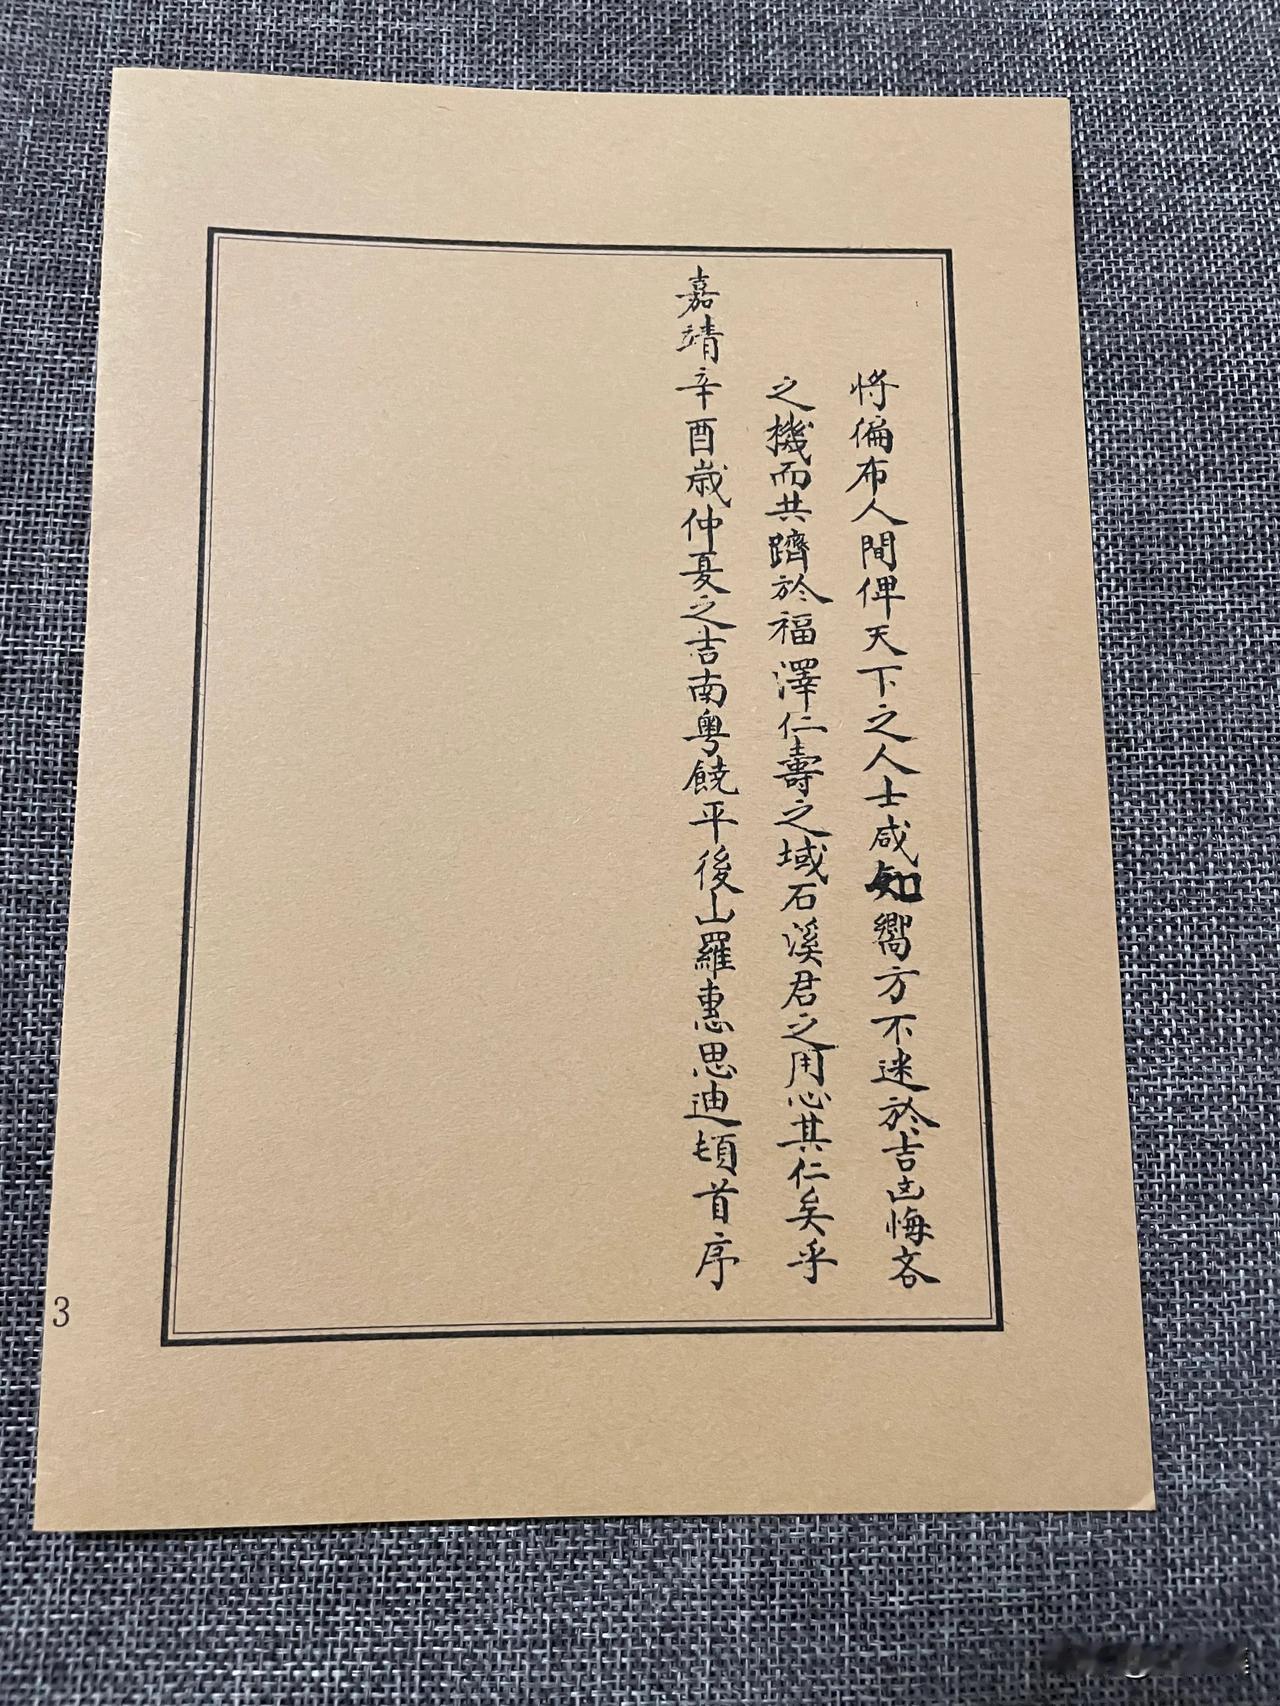 将徧布人間俾天下之人士咸知嚮方不迷於吉凶悔吝
之機而共躋於福澤仁壽之域石溪君之用心其仁矣乎
嘉靖辛酉歲仲夏之吉南粤饒平後山羅惠思迪頓首序
3